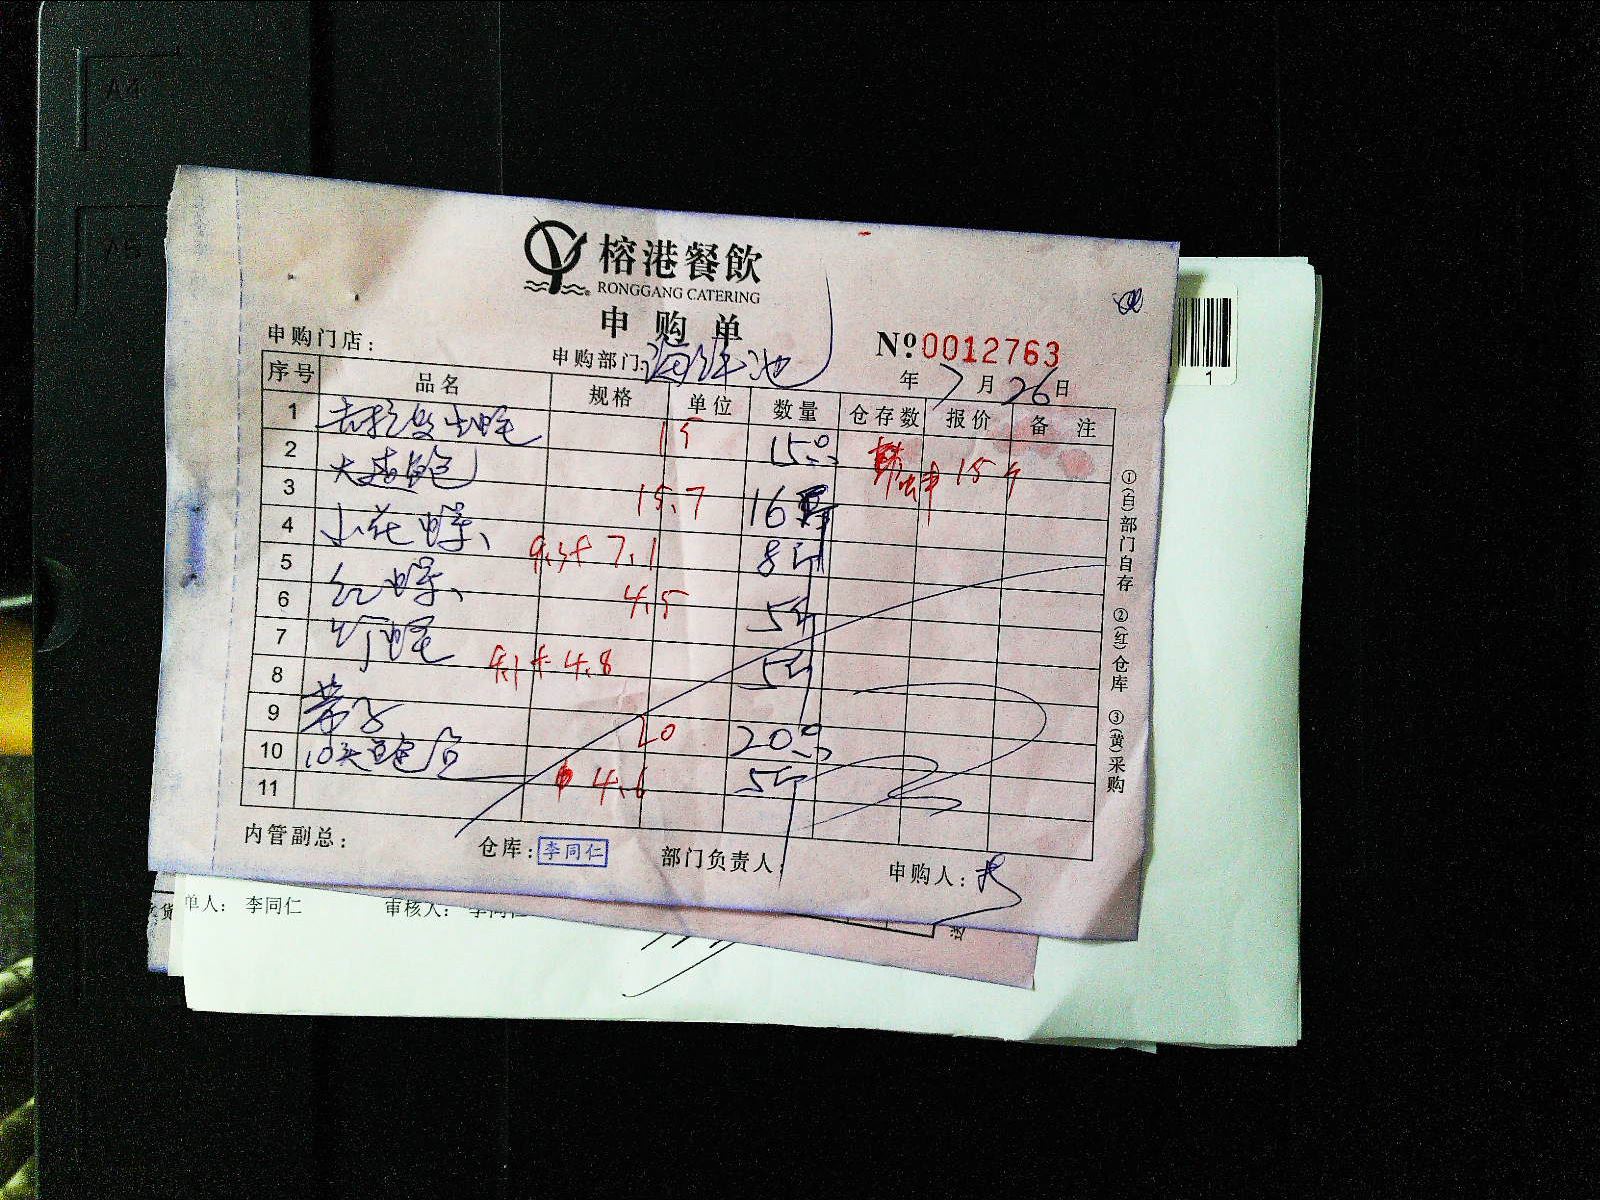 A4
A5
榕港餐飲
RONGGANG CATERING
申购单
申购门店：
申购部门：海鲜池
№0012763
年 7月26日
序号 品名 规格 单位 数量 仓存数 报价 备注
1 15 15只
2 大连鲍
3 15.7 16
4 小花螺、 9.3+7.1 8斤
5
6 红螺、 4.5 5斤
7 竹蛏 4.8 5斤
8
9 带子 20 20只
10 10头鲍仔 4.6 5斤
11
①(白)部门自存 ②(红)仓库 ③(黄)采购
内管副总：
仓库：李同仁
部门负责人：
申购人：
单人： 李同仁
审核人： 李同仁
1